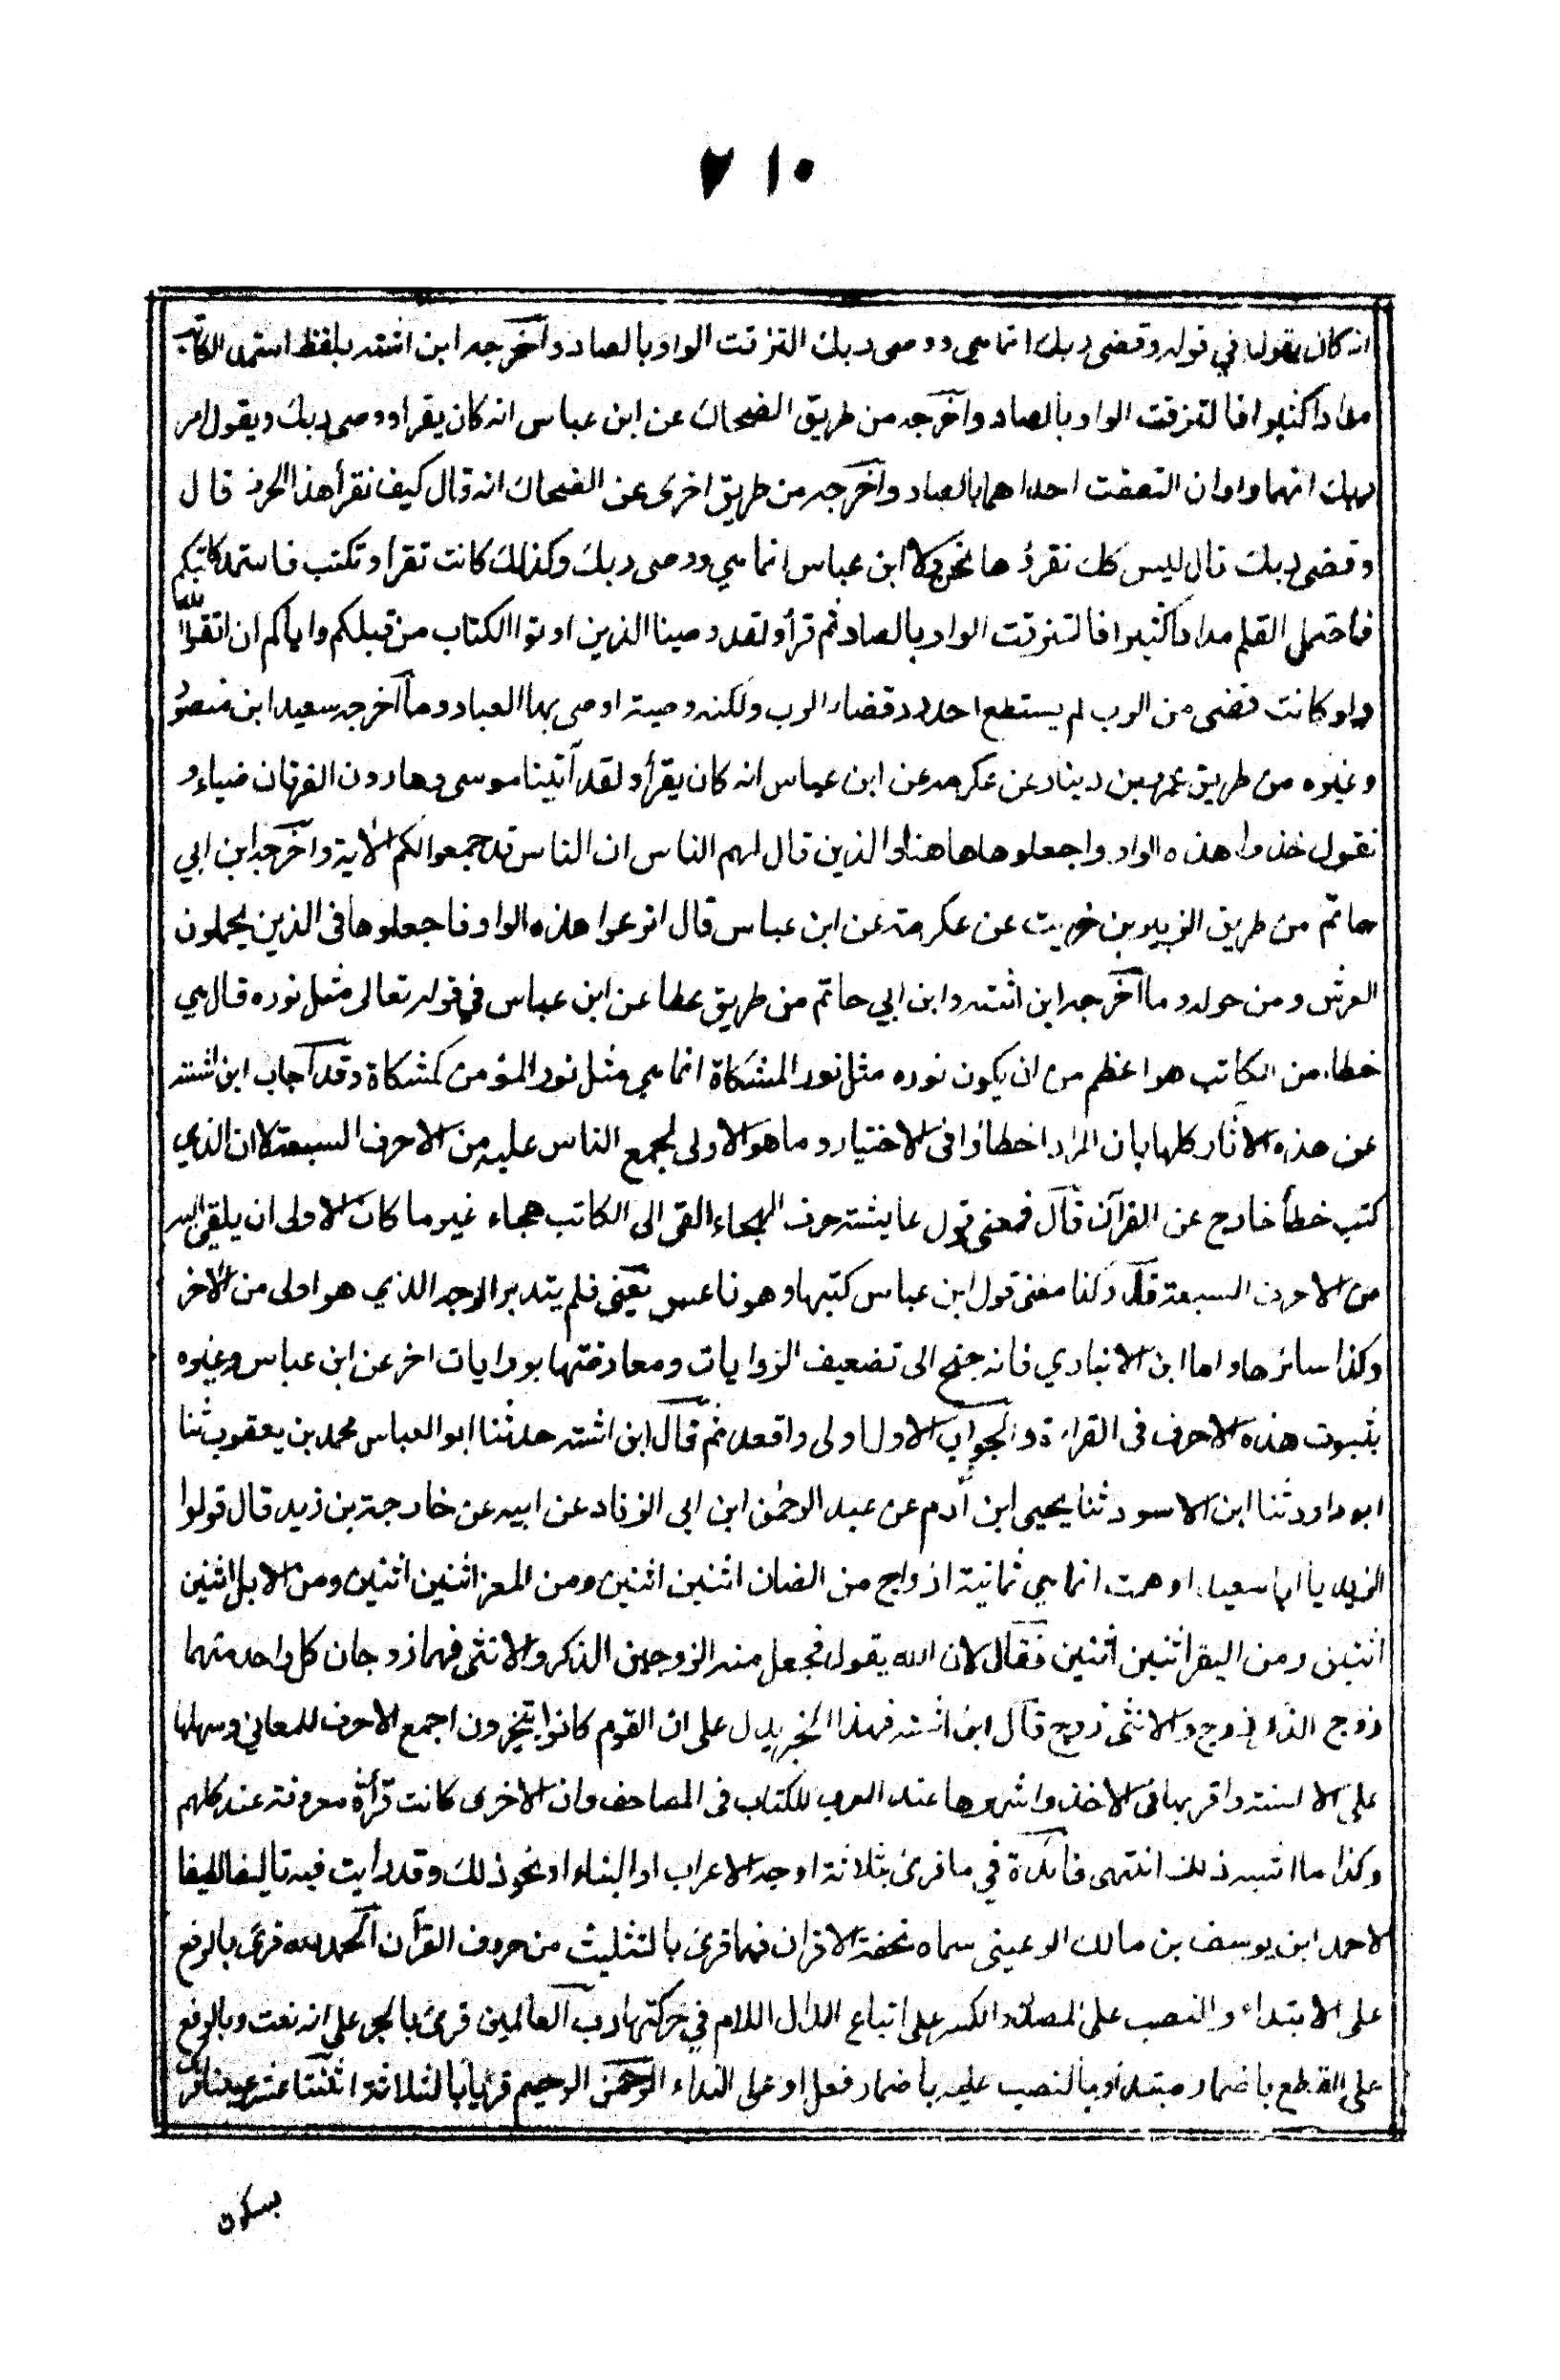 ٧١٠
انه كان يقول في قوله وقضى ربك انما هي ووصى ربك التزقت الواو بالصاد وأخرجه ابن اشته بلفظ استمد الكاتب
مدادا كثيرا فالتزقت الواو بالصاد وأخرجه من طريق الضحاك عن ابن عباس انه كان يقرا ووصى ربك ويقول امر
ربك انهما واوان التصقت احداهما بالصاد وأخرجه من طريق اخرى عن الضحاك انه قال كيف تقرأ هذا الحرف قال
وقضى ربك قال ليس كك نقرؤها نحن ولا ابن عباس انما هي ووصى ربك وكذلك كانت تقرأ وتكتب فاستمد كاتبكم
فأحتمل القلم مدادا كثيرا فالتزقت الواو بالصاد ثم قرأ ولقد وصينا الذين اوتوا الكتاب من قبلكم واياكم ان اتقوا الله
ولو كانت قضى من الرب لم يستطع احد رد قضاء الرب ولكنه وصية اوصى بها العباد وما أخرجه سعيد ابن منصور
وغيره من طريق عمرو بن دينار عن عكرمه عن ابن عباس انه كان يقرأ ولقد آتينا موسى وهارون الفرقان ضياء و
نقول خذوا هذه الواو واجعلوها هاهنا والذين قال لهم الناس ان الناس قد جمعوا لكم الآية وأخرجه ابن ابي
حاتم من طريق الزبير بن خريت عن عكرمة عن ابن عباس قال انزعوا هذه الواو فاجعلوها فى الذين يحملون
العرش ومن حوله وما أخرجه ابن اشته وابن ابي حاتم من طريق عطا عن ابن عباس في قوله تعالى مثل نوره قال هي
خطاء من الكاتب هو اعظم من ان يكون نوره مثل نور المشكاة انما هي مثل نور المؤمن كمشكاة وقد أجاب ابن اشته
عن هذه الاثار كلها بان المراد اخطاوا فى الاختيار وما هو الاولى لجمع الناس عليه من الاحرف السبعة لا ان الذي
كتب خطأ خارج عن القرآن قال فمعنى قول عايشة حرف الهجاء القى الى الكاتب هجاء غير ما كان الاولى ان يلقى اليه
من الاحرف السبعة قال وكذا معنى قول ابن عباس كتبها وهو ناعس يعنى فلم يتدبر الوجه الذي هو اولى من الاخر
وكذا سائرها واما ابن الانباري فانه جنح الى تضعيف الروايات ومعارضتها بروايات اخر عن ابن عباس وغيره
بثبوت هذه الاحرف فى القراءة والجواب الاول اولى واقعد ثم قال ابن اشته حدثنا ابو العباس محمد بن يعقوب ثنا
ابو داود ثنا ابن الاسود ثنا يحيى ابن آدم عن عبد الرحمن ابن ابى الزناد عن ابيه عن خارجة بن زيد قال قولوا
لزيد يا ابا سعيد اوهمت انما هي ثمانية ازواج من الضان اثنين اثنين ومن المعز اثنين اثنين ومن الابل اثنين
اثنين ومن البقر اثنين اثنين فقال لان الله يقول فجعل منه الزوجين الذكر والانثى فهما زوجان كل واحد منهما
زوج الذكر زوج والانثى زوج قال ابن اشته فهذا الخبر يدل على ان القوم كانوا يتخيرون اجمع الاحرف للمعاني وسهلها
على الالسنه واقربها فى الاخذ واشهرها عند العرب للكتاب فى المصاحف وان الاخرى كانت قرأة معروفة عند كلهم
وكذا ما اشبه ذلك انتهى فائدة في ما قرئ بثلاثة اوجه الاعراب او البناء او نحو ذلك وقد رايت فيه تاليفا لطيفا
لاحمد ابن يوسف بن مالك الرعيني سماه تحفة الاقران فيما قرئ بالتثليث من حروف القرآن الحمد لله قرئ بالرفع
على الابتداء والنصب على المصدر والكسر على اتباع الدال اللام في حركتها رب العالمين قرئ بالجر على انه نعت وبالرفع
على القطع باضمار مبتدأ وبالنصب عليه باضمار فعل او على النداء الرحمن الرحيم قرئا بالثلاثة اثنتا عشرة عينا قرئ
بسكون